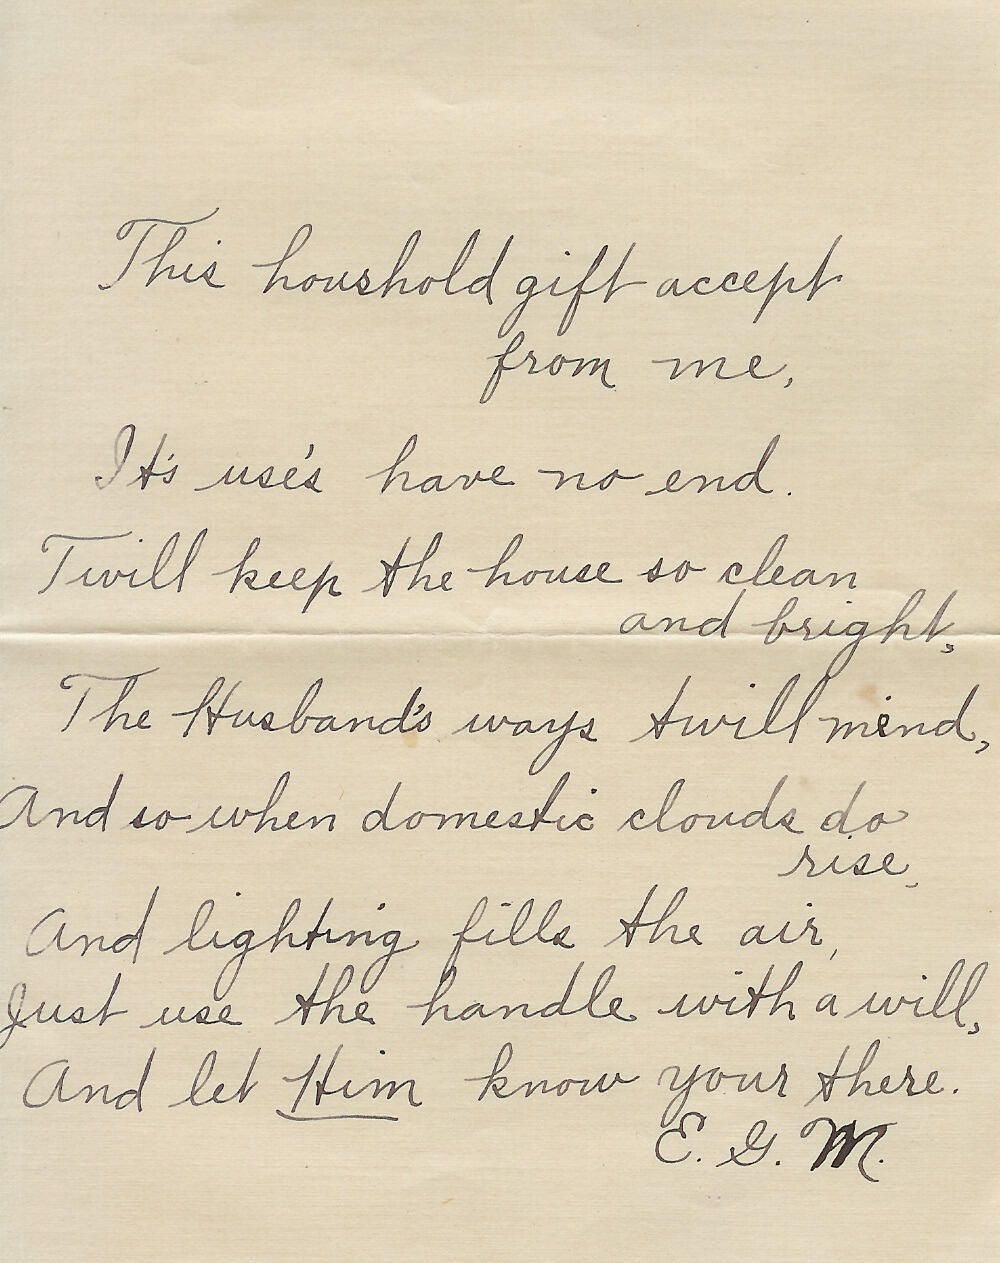 This houshold gift accept
from me,
It's use's have no end.
Twill keep the house so clean
and bright,
The Husband's ways twill mend,
And so when domestic clouds do
rise,
And lighting fills the air,
Just use the handle with a will,
And let Him know your there.
E. G. M.